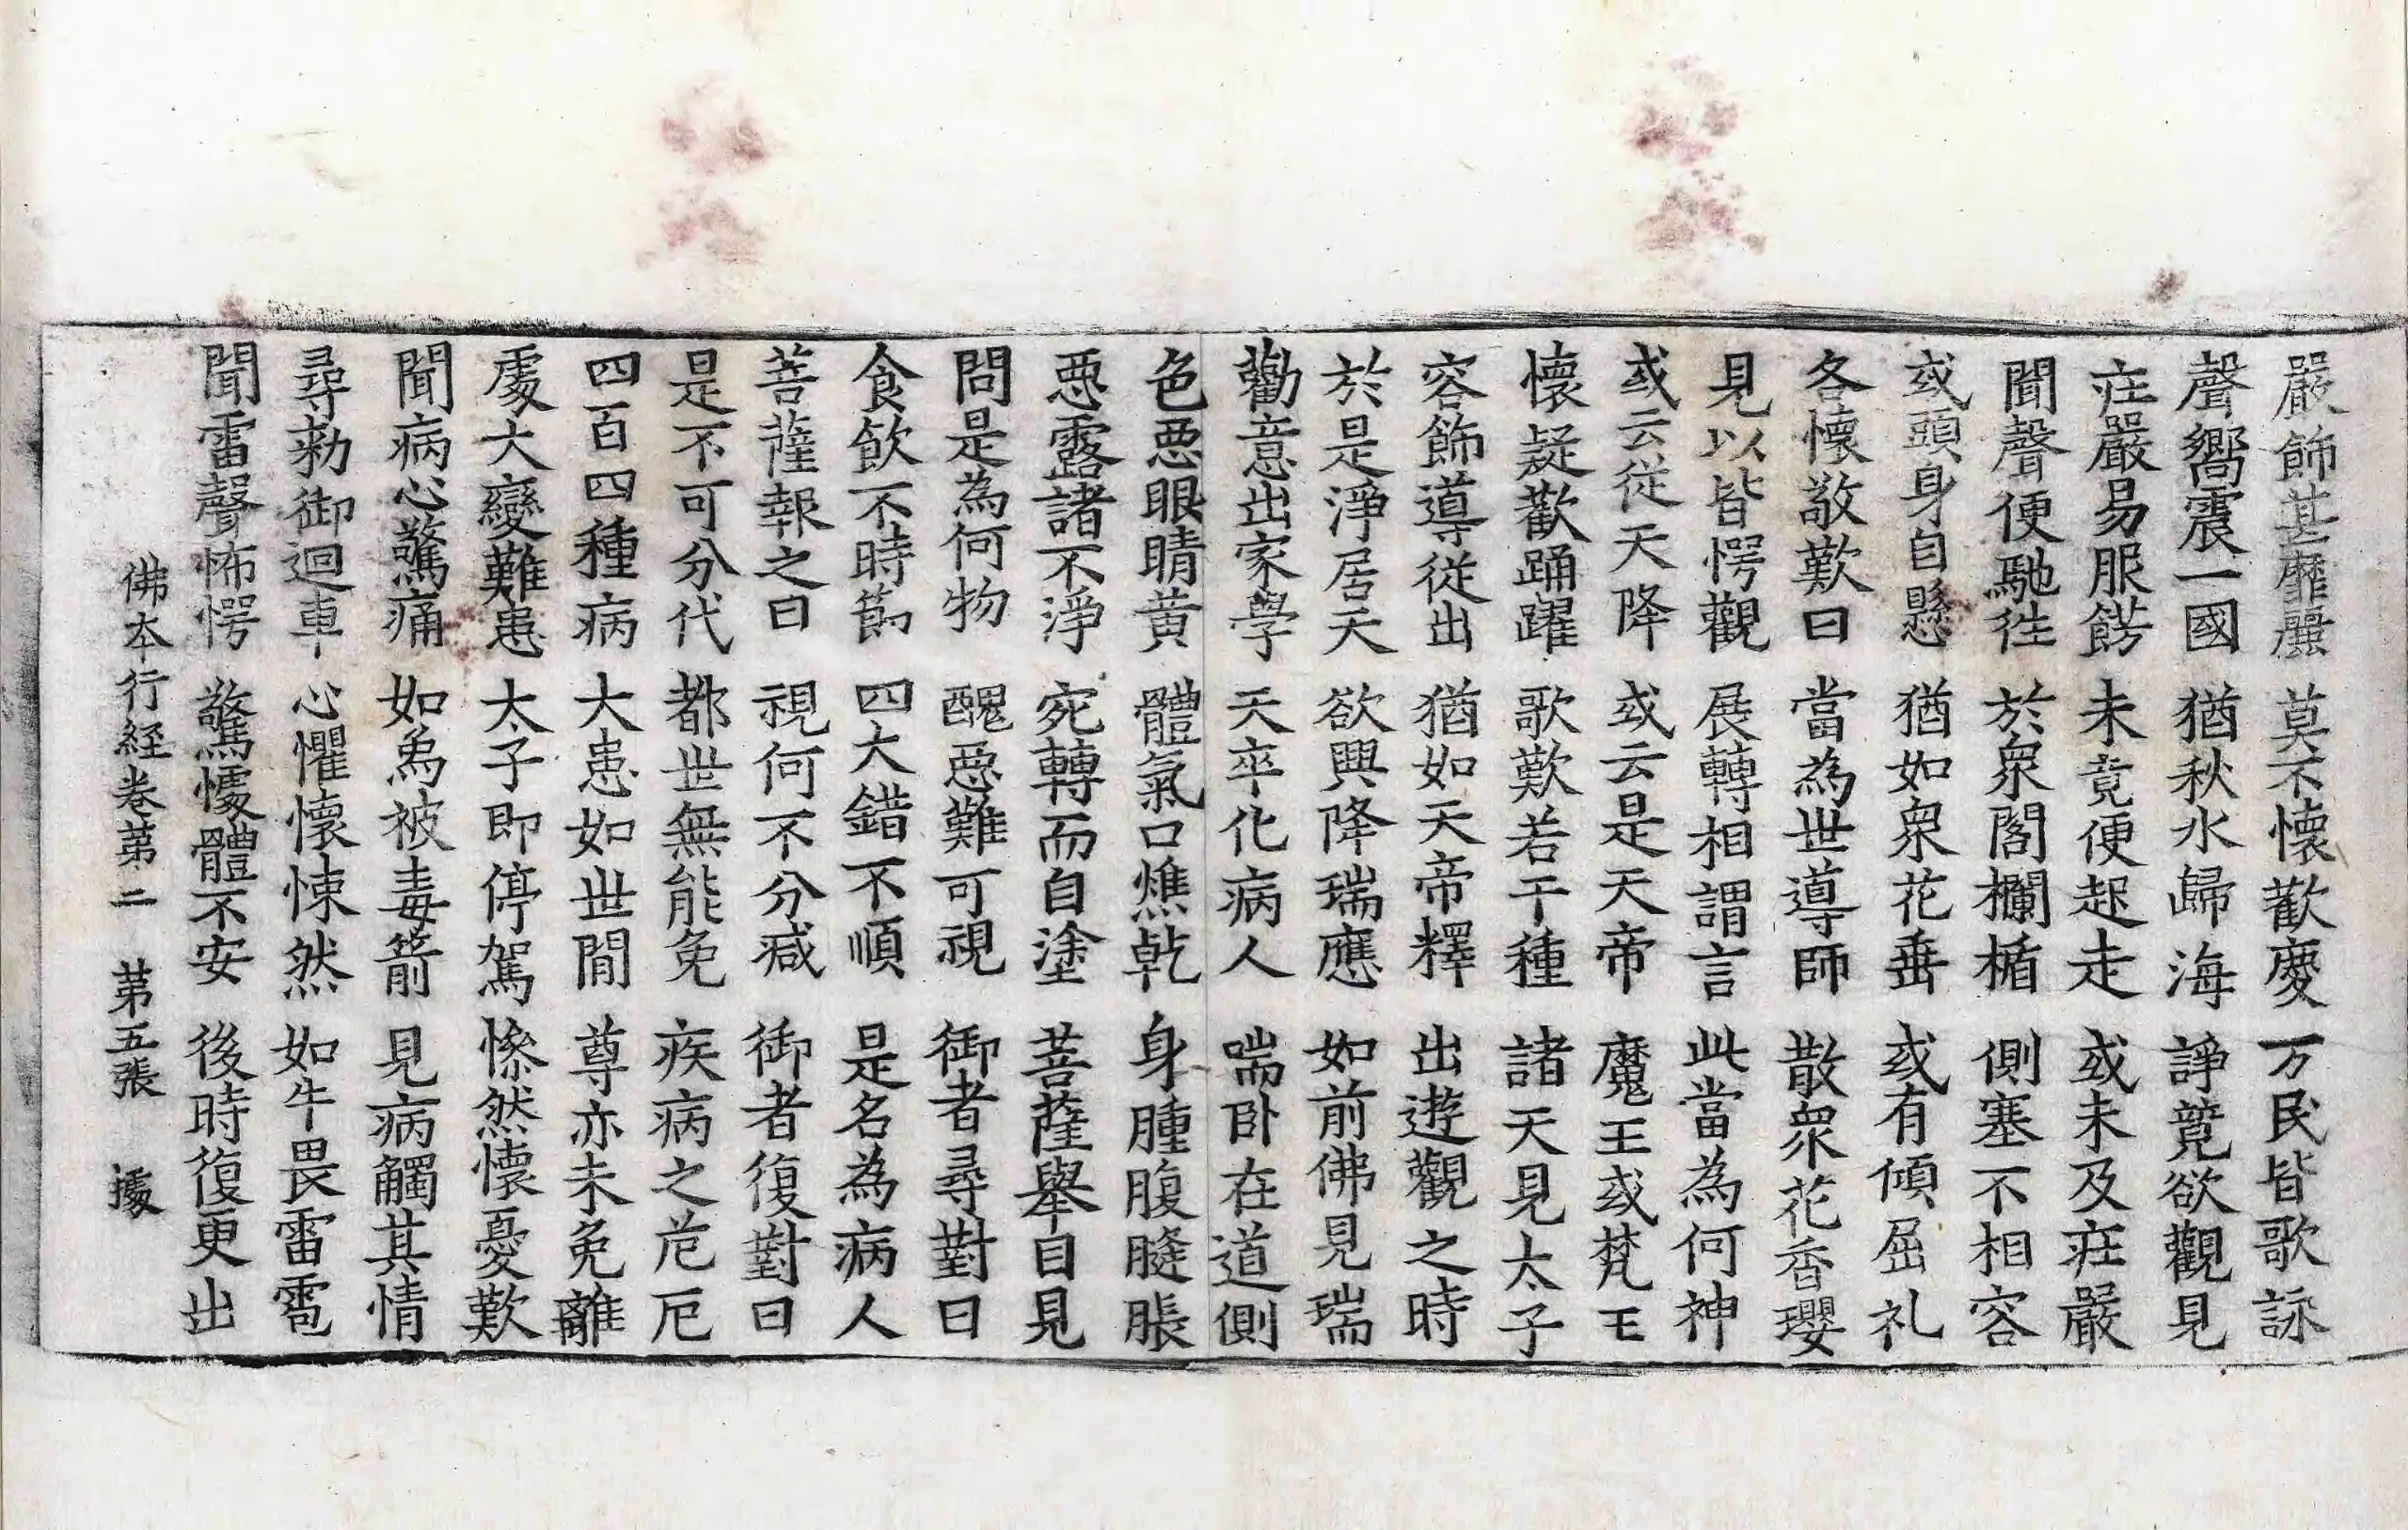 嚴飾甚靡麗　莫不懷歡慶　万民皆歌詠
聲嚮震一國　猶秋水歸海　諍競欲觀見
庄嚴易服餝　未竟便起走　或未及庄嚴
聞聲便馳徃　於衆閣欄楯　側塞不相容
或頭身自懸　猶如衆花垂　或有傾屈礼
各懷敬歎曰　當為世導師　散衆花香瓔
見以皆愕觀　展轉相謂言　此當為何神
或云從天降　或云是天帝　魔王或梵王
懷疑歡踊躍　歌歎若干種　諸天見太子
容飾導從出　猶如天帝釋　出遊觀之時
於是淨居天　欲興降瑞應　如前佛見瑞
勸意出家學　天卒化病人　喘卧在道側
色惡眼睛黃　體氣口燋乾　身腫腹膖脹
惡露諸不淨　宛轉而自塗　菩薩舉目見
問是為何物　醜惡難可視　御者尋對曰
食飲不時節　四大錯不順　是名為病人
菩薩報之曰　視何不分減　御者復對曰
是不可分代　都世無能免　疾病之危厄
四百四種病　大患如世間　尊亦未免離
處大變難患　太子即停駕　慘然懷憂歎
聞病心驚痛　如為被毒箭　見病觸其情
尋勑御迴車　心懼懷悚然　如牛畏雷雹
聞雷聲怖愕　驚懅體不安　後時復更出
佛本行経卷第二　第五張　據